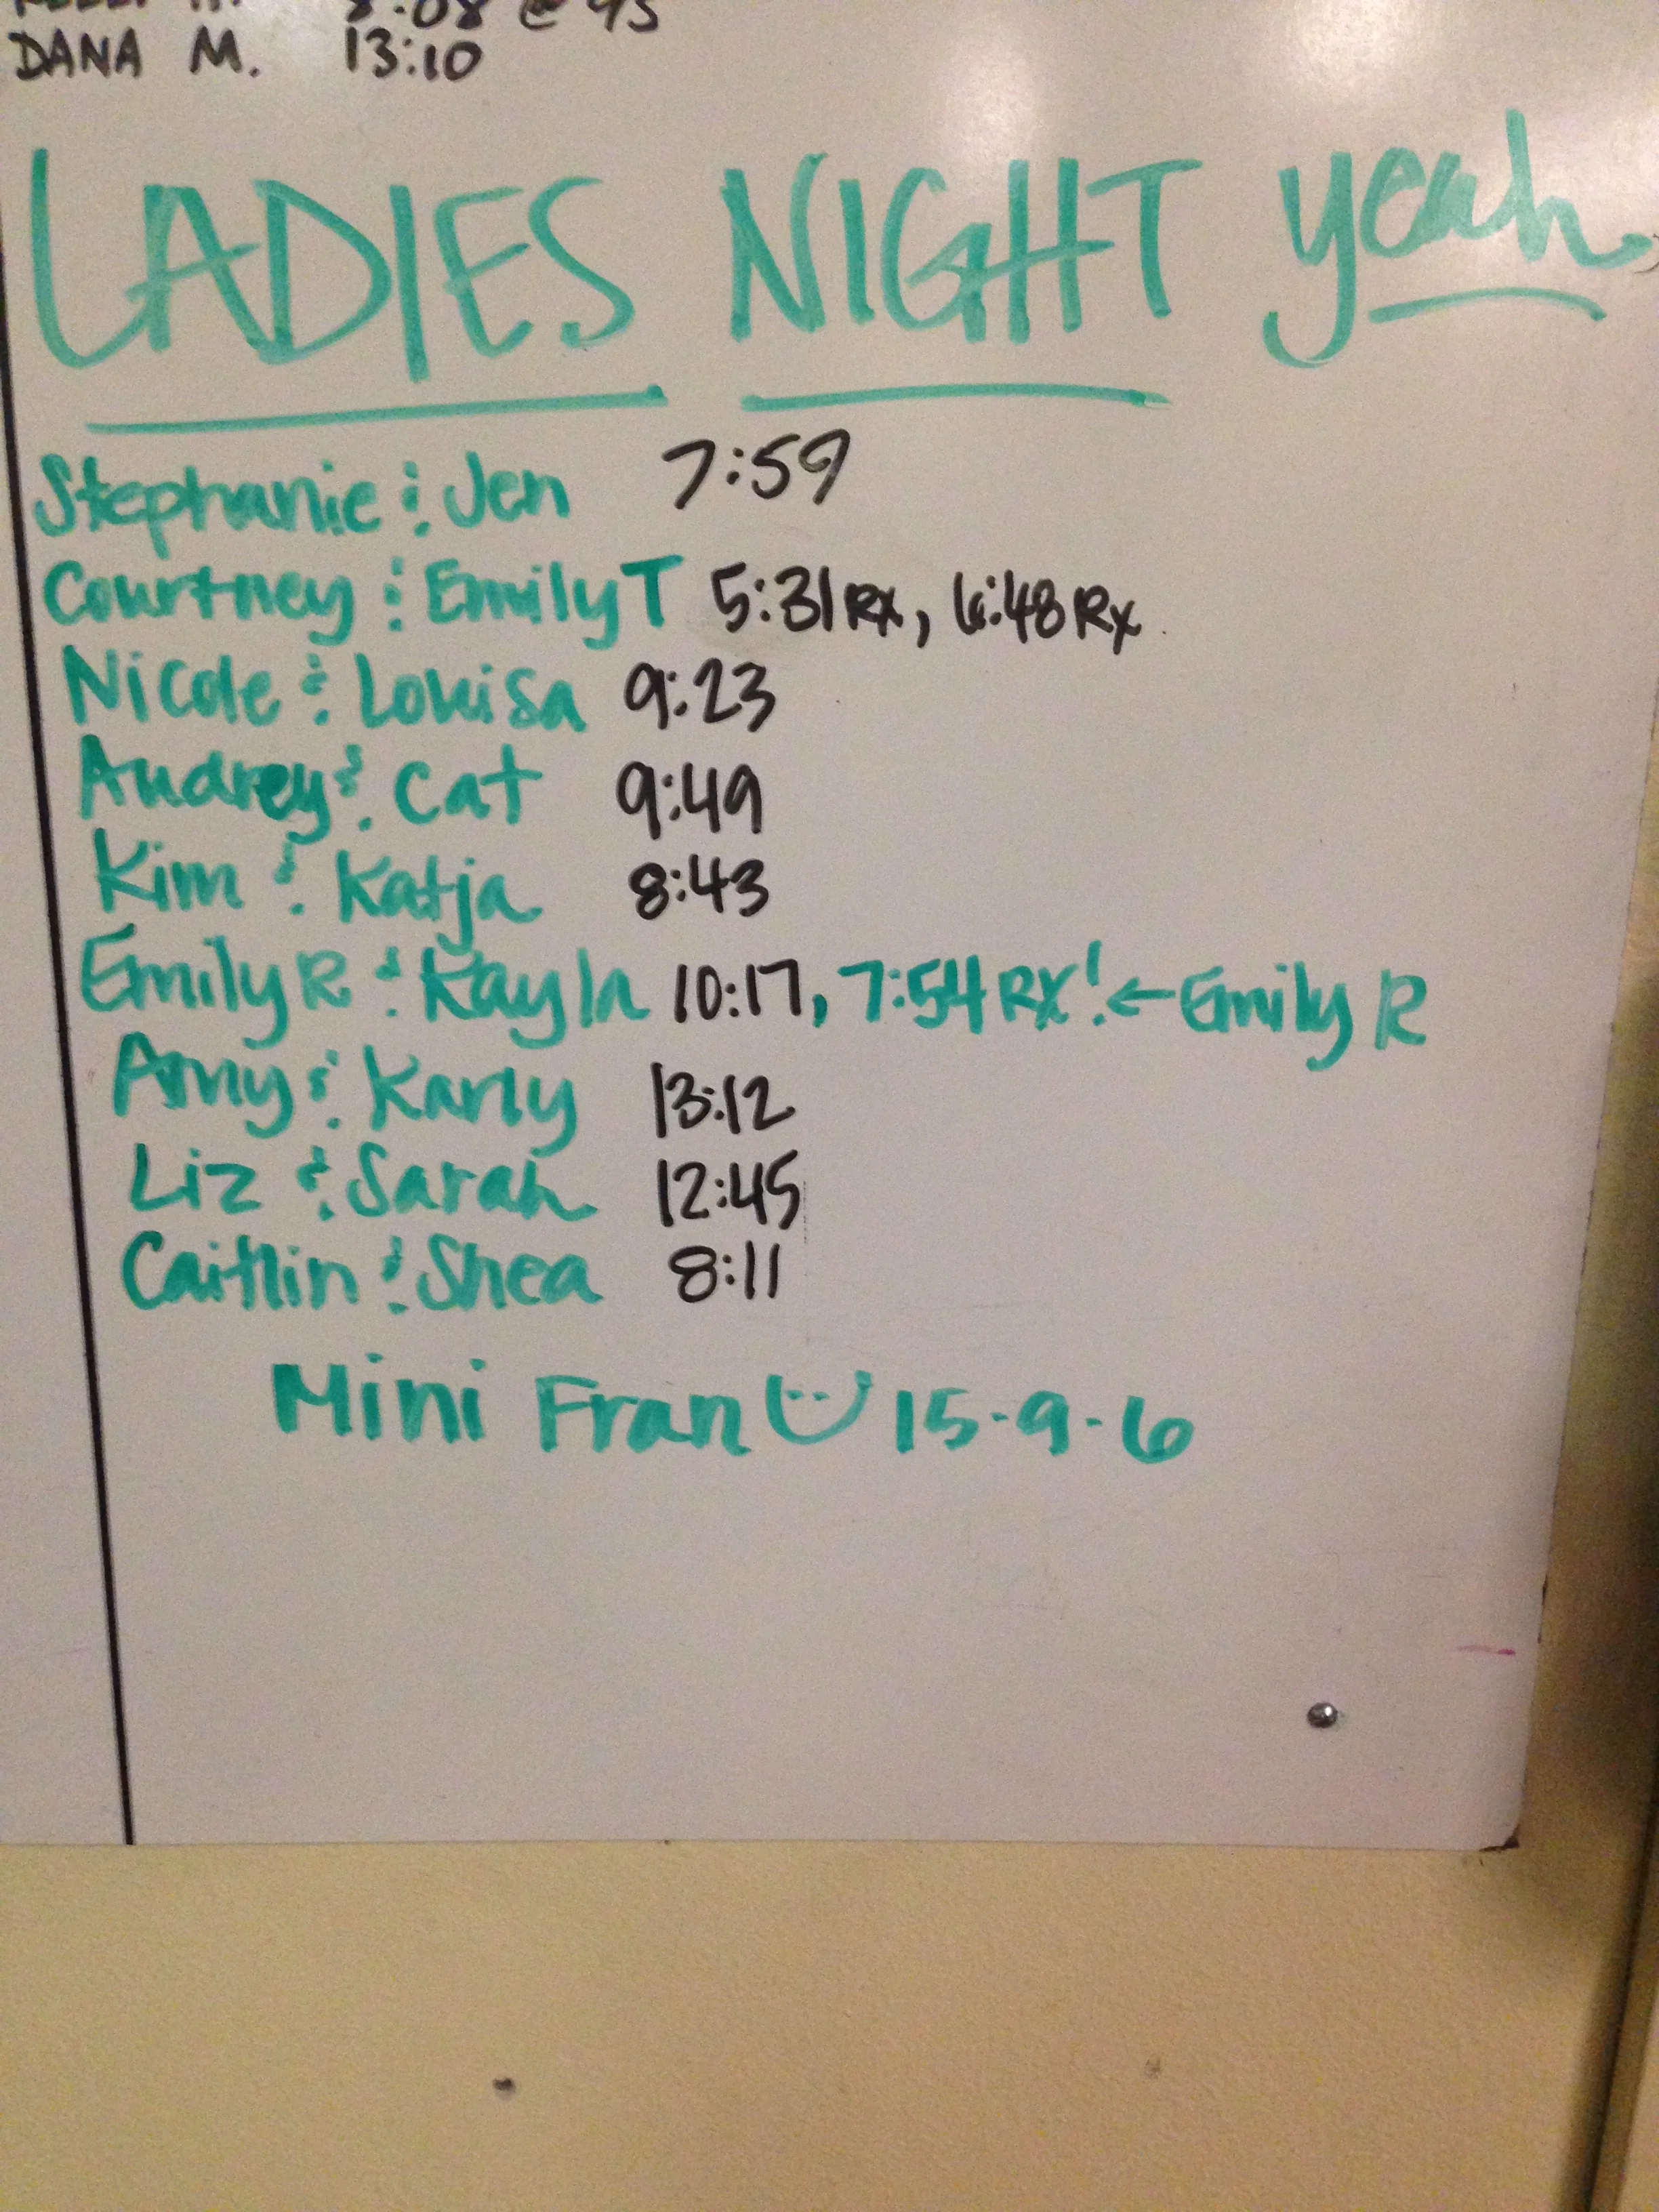 8:08 @ 95
DANA M. 13:10
LADIES NIGHT yeah
Stephanie & Jen 7:59
Courtney & Emily T 5:31 Rx, 6:48 Rx
Nicole & Louisa 9:23
Audrey & Cat 9:49
Kim & Katja 8:43
Emily R & Kayla 10:17, 7:54 RX! ← Emily R
Amy & Karly 13:12
Liz & Sarah 12:45
Caitlin & Shea 8:11
Mini Fran 15-9-6